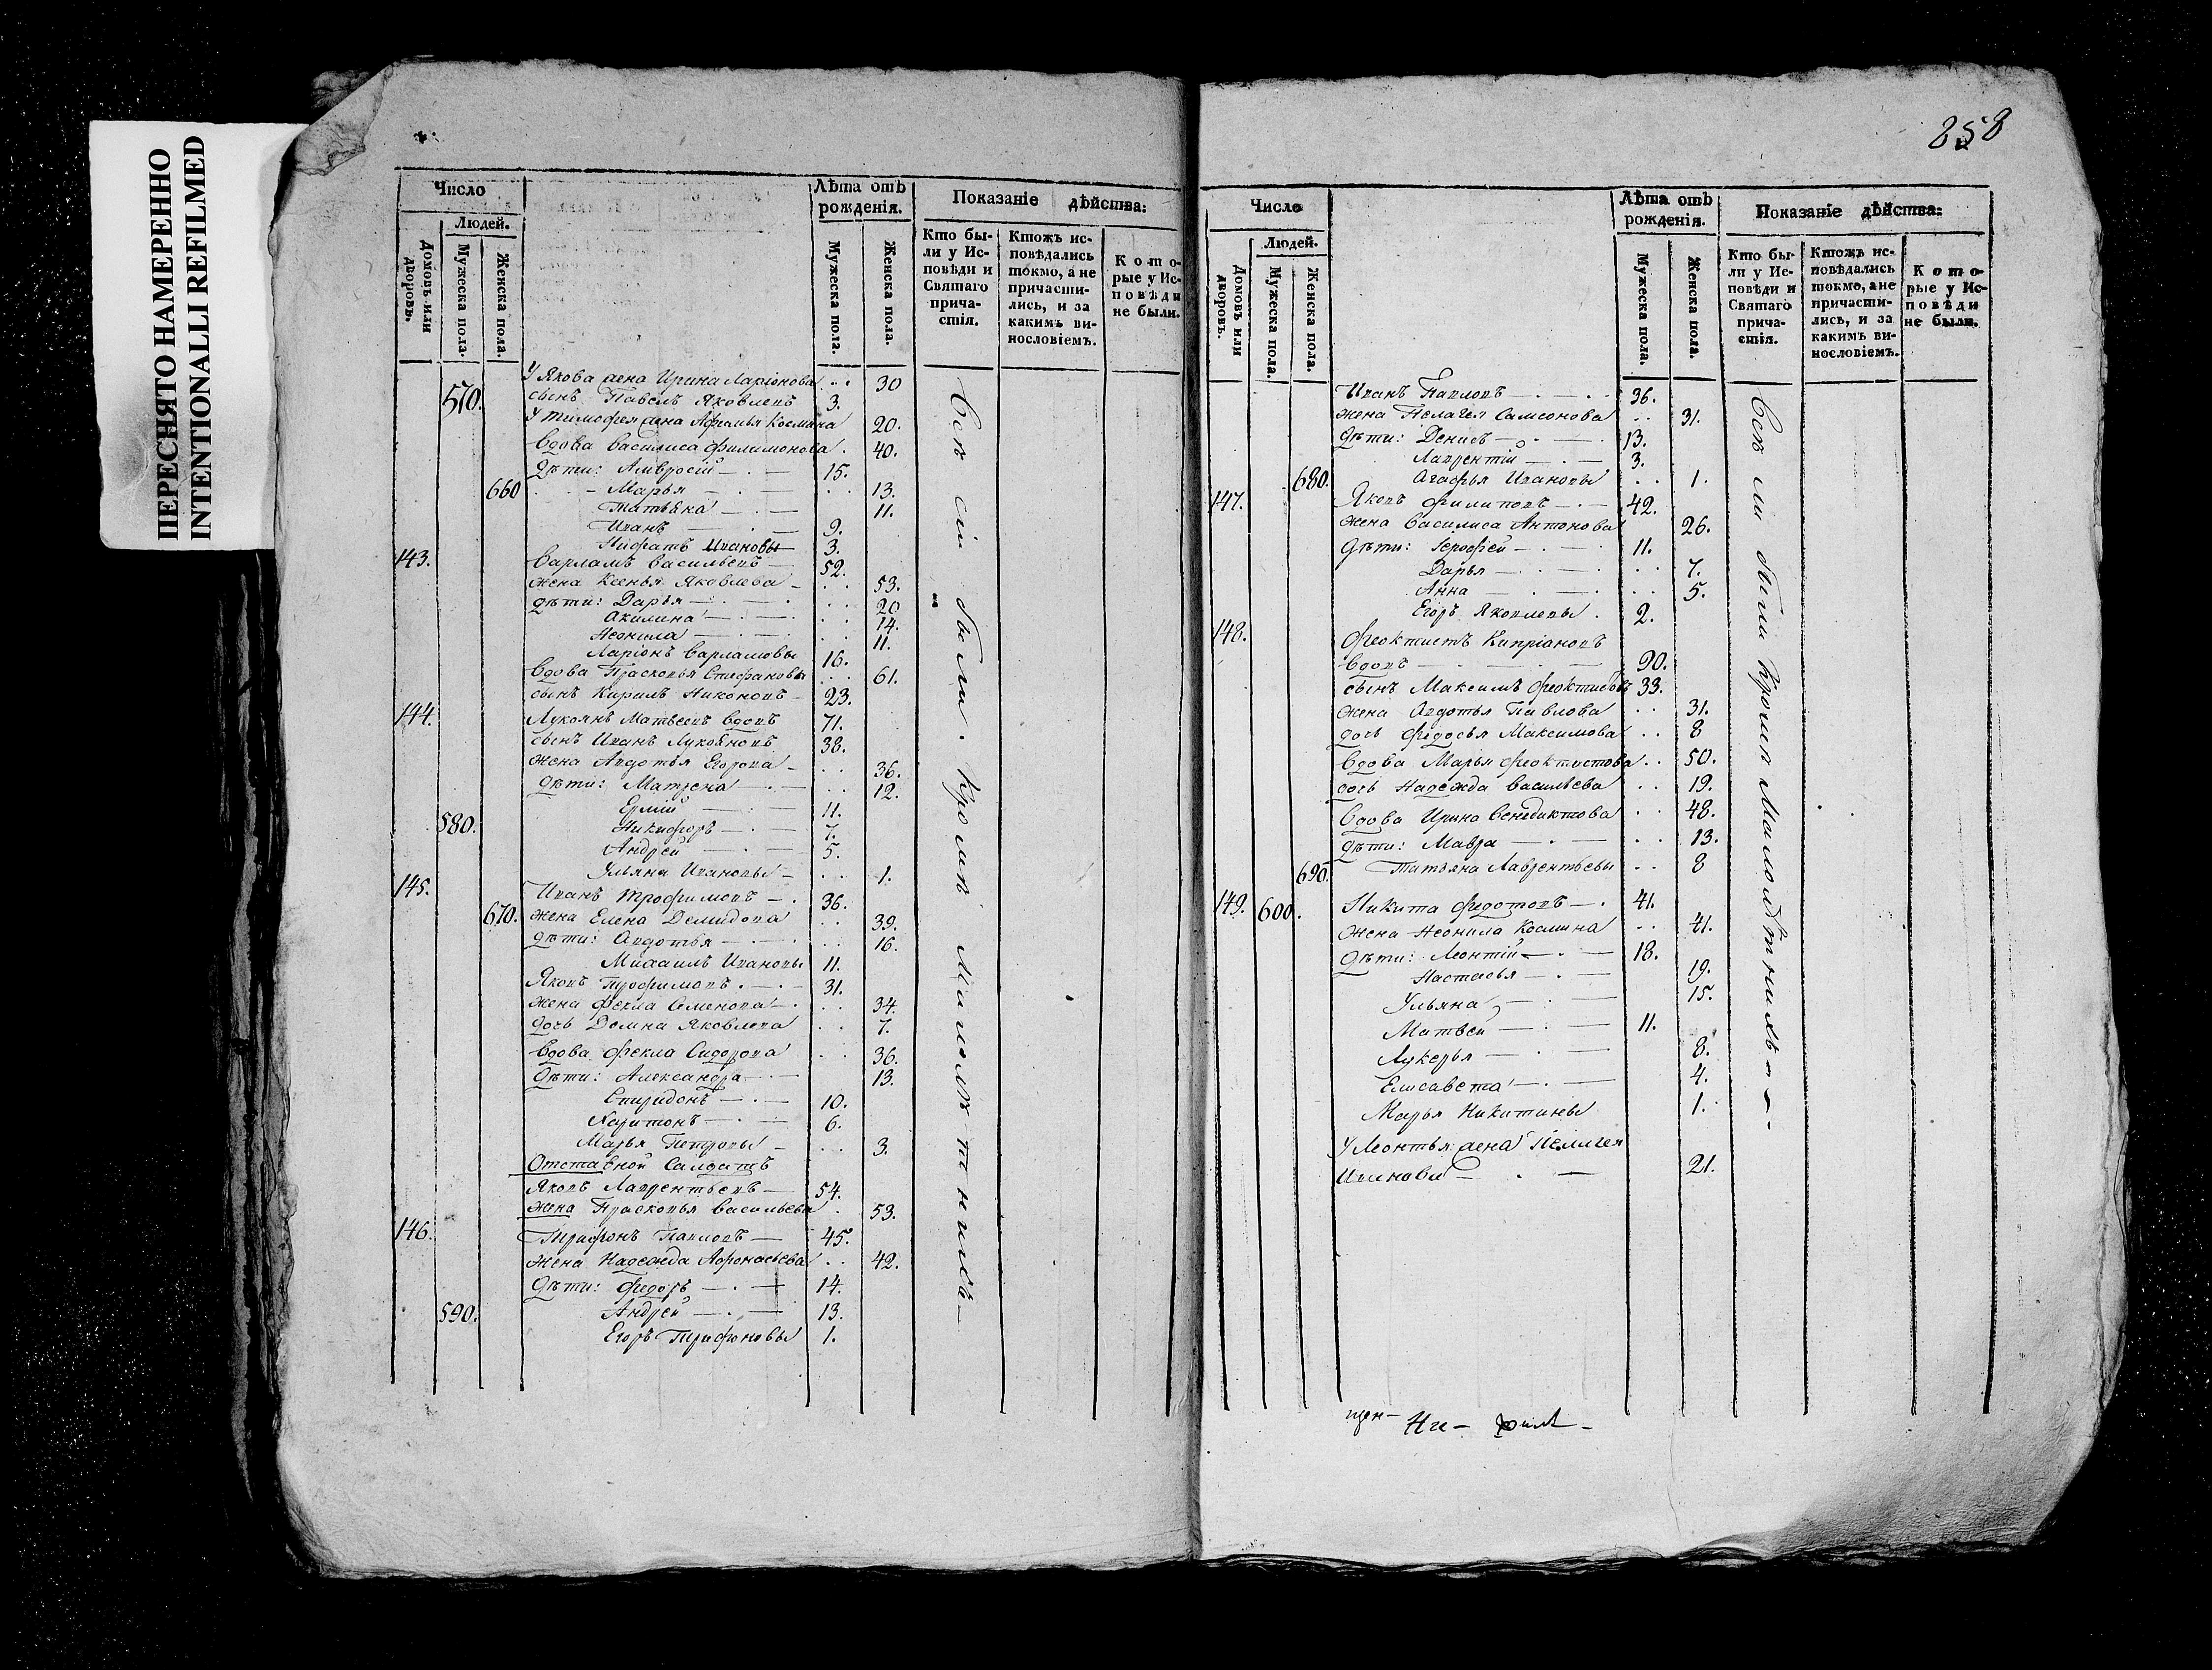 ПЕРЕСНЯТО НАМЕРЕННО
INTENTIONALLI REFILMED
Число
Людей.
Домовъ или дворовъ.
Мужеска пола.
Женска пола.
Лѣта отъ рожденія.
Мужеска пола.
Женска пола.
Показаніе дѣйства:
Кто бы-
ли у Ис-
повѣди и
Святаго
прича-
стія.
Ктожъ ис-
повѣдались
токмо, а не
причасти-
лись, и за
какимъ ви-
нословіемъ.
Кото-
рые у Ис-
повѣди
не были.
У Якова жена Ирина Ларіонова . . 30
570. сынъ Павелъ Яковлевъ 3.
У Тимофея жена Афимья Космина 20.
Вдова Василиса Филимонова . 40.
Дѣти: Амвросій 15.
660 Марья . . 13.
Татьяна 11.
Иванъ 9.
Нифатъ Ивановы 3.
143. Варламъ Васильевъ 52.
жена Ксенья Яковлева . . 53.
дѣти: Дарья . . 20
Акилина . . 14.
Неонила . . 11.
Ларіонъ Варламовы 16.
Вдова Прасковья Стефановы . . 61.
сынъ Кирилъ Никоновъ 23.
144. Лукоянъ Матвеевъ вдовъ 71.
сынъ Иванъ Лукояновъ 38.
жена Авдотья Егорова . . 36.
дѣти: Матрена . . 12.
Ермій 11.
580. Никифоръ 7.
Андрей 5.
Ульяна Ивановы . . 1.
145. Иванъ Трофимовъ 36.
670. жена Елена Демидова . . 39.
дѣти: Авдотья . . 16.
Михаилъ Ивановы 11.
Яковъ Трофимовъ 31.
жена Фекла Семенова . . 34.
дочь Домна Яковлева . . 7.
Вдова Фекла Сидорова . . 36.
Дѣти: Александра 13.
Спиридонъ 10.
Харитонъ 6.
Марья Петровы . . 3.
Отставной Салдатъ
Яковъ Лаврентьевъ 54.
жена Прасковья Васильева . 53.
146. Трифонъ Павловъ 45.
жена Надежда Афонасьева . . 42.
Дѣти: Федоръ 14.
590. Андрей 13.
Егоръ Трифоновы 1.
Всѣ сіи были. Кромѣ малолѣтнихъ
858
Число
Людей.
Домовъ или дворовъ.
Мужеска пола.
Женска пола.
Лѣта отъ рожденія.
Мужеска пола.
Женска пола.
Показаніе дѣйства:
Кто бы-
ли у Ис-
повѣди и
Святаго
прича-
стія.
Ктожъ ис-
повѣдались
токмо, а не
причасти-
лись, и за
какимъ ви-
нословіемъ.
Кото-
рые у Ис-
повѣди
не были.
Иванъ Павловъ 36.
жена Пелагея Самсонова . . 31.
Дѣти: Денисъ 13.
Лаврентій 3.
680. Агафья Ивановы . . 1.
147. Яковъ Филиповъ 42.
жена Василиса Антонова 26.
Дѣти: Ерофей 11.
Дарья . . 7.
Анна . . 5.
Егоръ Яковлевы . 2.
148. Феоктистъ Кипріановъ
вдовъ 90.
сынъ Максимъ Феоктистовъ 33.
жена Авдотья Павлова . . 31.
дочь Федосья Максимова . . 8
Вдова Марья Феоктистова . . 50.
дочь Надежда Васильева . . 19.
Вдова Ирина Венедиктова . . 48.
Дѣти: Мавра . . 13.
690. Татьяна Лаврентьевы . . 8
149. 600. Никита Федотовъ 41.
жена Неонила Космина . . 41.
Дѣти: Леонтій 18.
Настасья 19.
Ульяна 15.
Матвей 11.
Лукерья 8.
Елисавета 4.
Марья Никитины 1.
У Леонтья жена Пелагея
Иванова 21.
Всѣ были Кромя Малолѣтнихъ